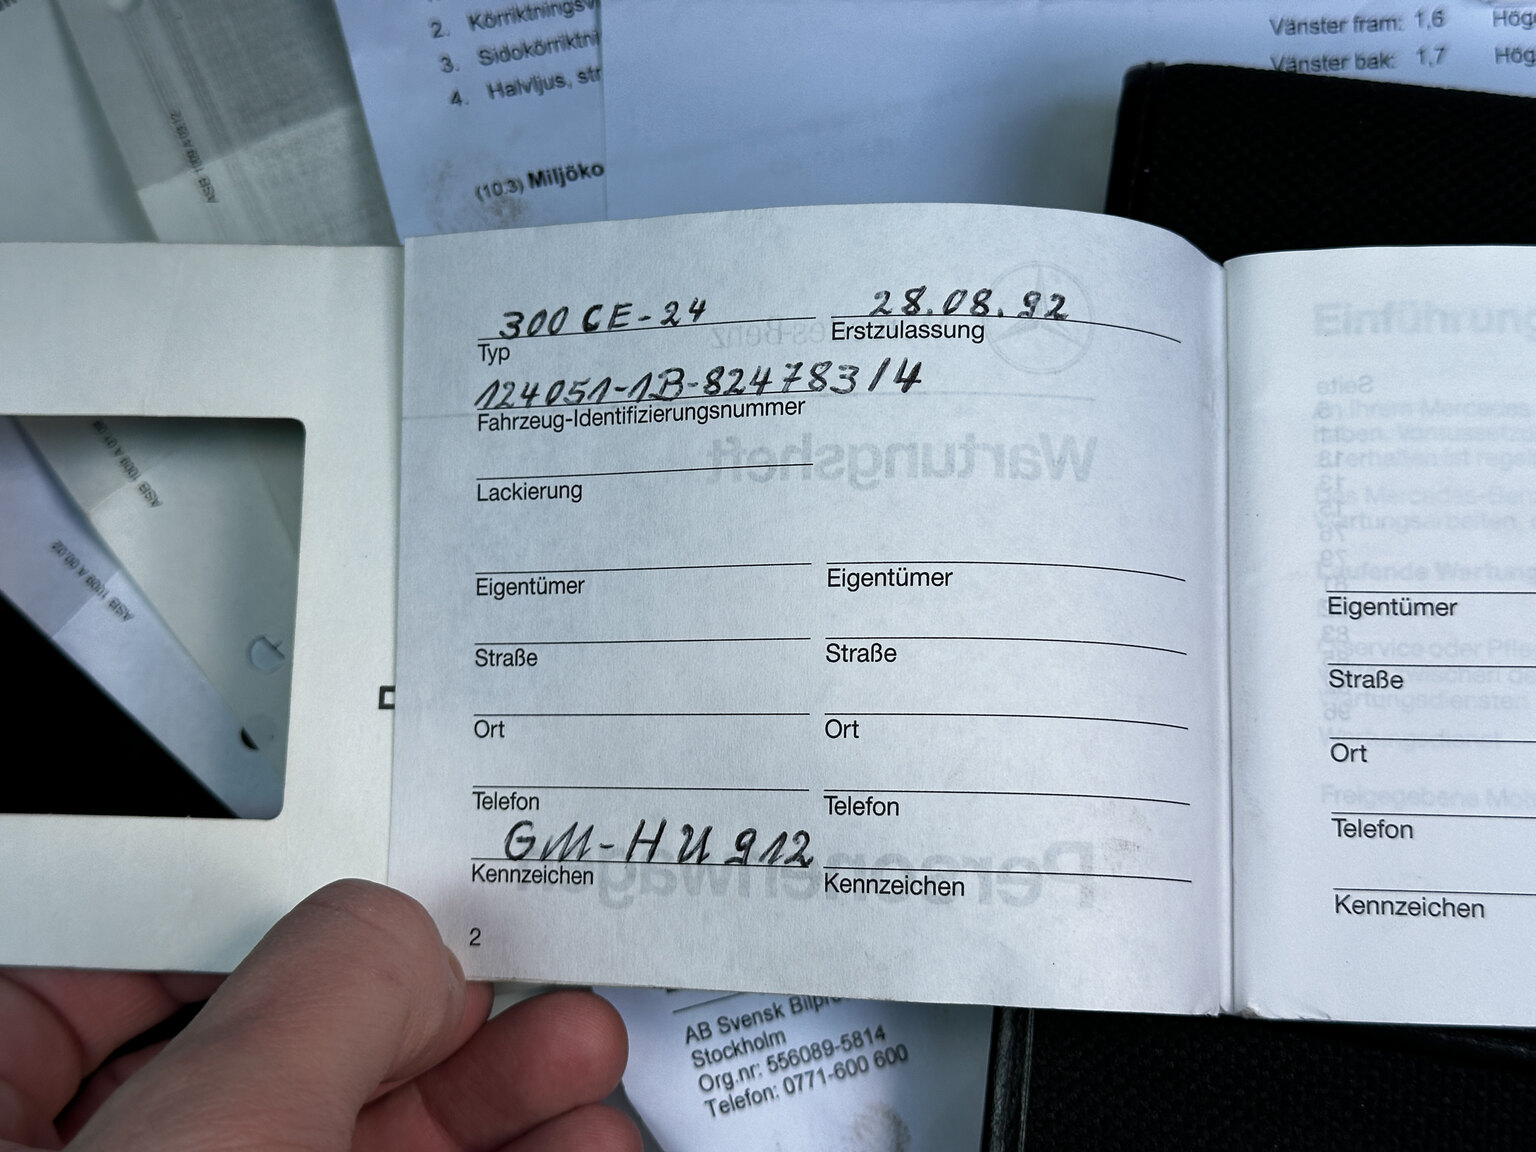 2. Körriktningsv
3. Sidokörriktni
4. Halvljus, str
(10.3) Miljöko
Vänster fram: 1,6 Hög
Vänster bak: 1,7 Hög
ASB 1009 A 09.12
ASB 1009 A 01.08
ASB 1009 A 00.02
300 CE-24 28.08.92
Typ Erstzulassung
124051-1B-824783/4
Fahrzeug-Identifizierungsnummer
Lackierung
Eigentümer Eigentümer
Straße Straße
Ort Ort
Telefon Telefon
GM-HU 912
Kennzeichen Kennzeichen
2
Wartungsheft
Personenwagen
Einführung
Eigentümer
Straße
Ort
Telefon
Kennzeichen
AB Svensk Bilpro
Stockholm
Org.nr: 556089-5814
Telefon: 0771-600 600